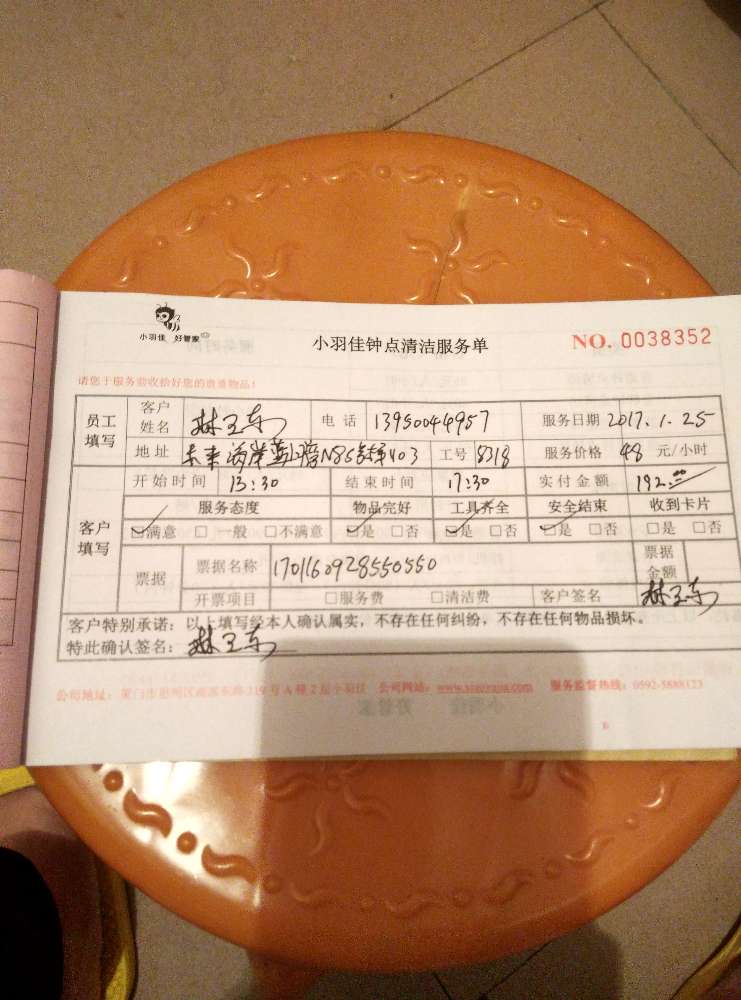 小羽佳 好管家
小羽佳钟点清洁服务单
NO. 0038352
请您于服务前收拾好您的贵重物品!
员工填写 客户姓名 林王东 电话 13950044957 服务日期 2017.1.25
地址 未来海岸 403 工号 8318 服务价格 48 元/小时
客户填写 开始时间 13:30 结束时间 17:30 实付金额 192.00
服务态度 物品完好 工具齐全 安全结束 收到卡片
☑满意 □一般 □不满意 ☑是 □否 ☑是 □否 ☑是 □否 □是 □否
票据 票据名称 1701160928550550 票据金额
开票项目 □服务费 □清洁费 客户签名 林王东
客户特别承诺:以上填写经本人确认属实,不存在任何纠纷,不存在任何物品损坏。
特此确认签名:林王东
公司地址:厦门市思明区 319号A幢2层小羽佳 公司网站: 服务监督热线:0592-5688123